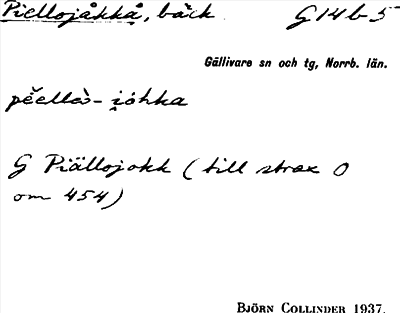 Piellojåkkå, bäck G 14 b-5
Gällivare sn och tg, Norrb. län.
pĕellɔ̀- i̯óhka
G Piällojokk (till strax O
om 454)
BJÖRN COLLINDER 1937.